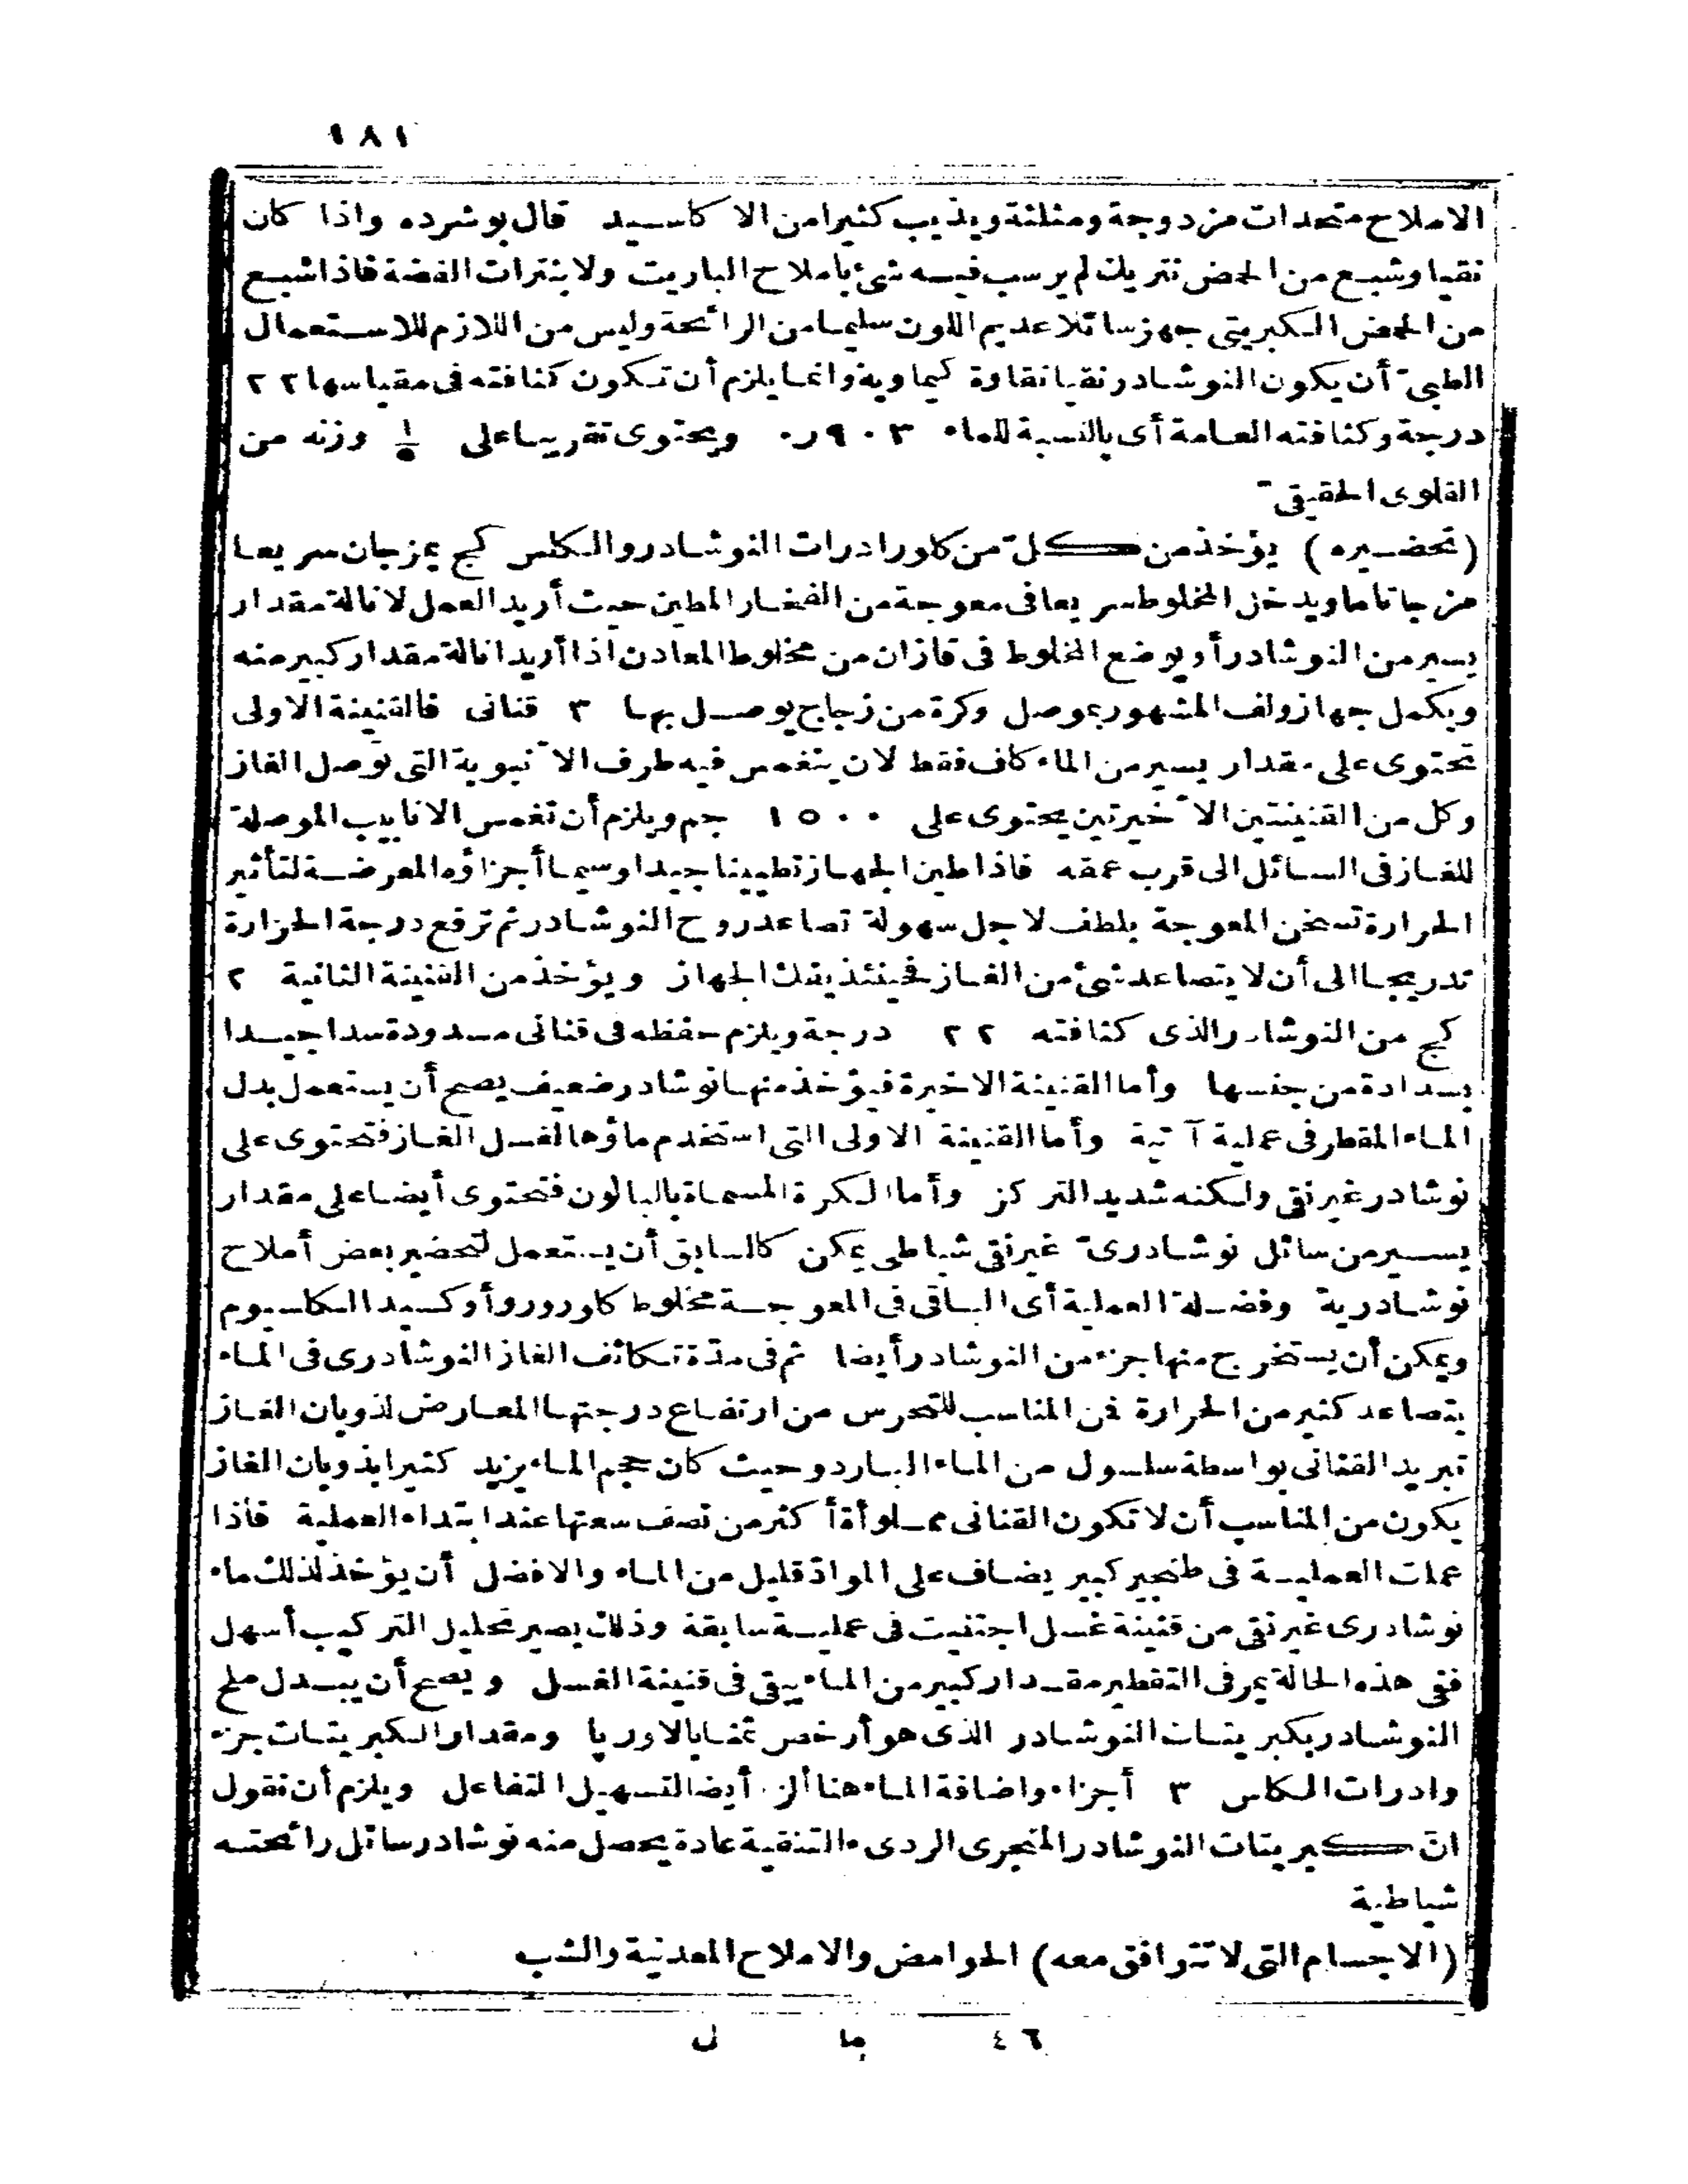 ١٨١
الاملاح متحدات مزدوجة ومثلثة ويذيب كثيرا من الاكاسيد قال بوشرده واذا كان
نقيا وشبع من الحمض نتريك لم يرسب فيه شئ باملاح الباريت ولا بنترات الفضة فاذا شبع
من الحمض الكبريتى جهز سائلا عديم اللون سليما من الرائحة وليس من اللازم للاستعمال
الطبى أن يكون النوشادر نقيا نقاوة كيماوية وانما يلزم أن تكون كثافته فى مقياسها ٢٢
درجة وكثافته العامة أى بالنسبة للماء ٩٠٣ر٠ ويحتوى تقريبا على ١/٥ وزنه من
القلوى الحقيقى
(تحضيره) يؤخذ من كل من كلورادرات النوشادر والكلس كج يمزجان سريعا
مزجا تاما ويدخل المخلوط سريعا فى معوجة من الفخار المطين حيث أريد العمل لانالة مقدار
يسير من النوشادر أو يوضع المخلوط فى قازان من مخلوط المعادن اذا أريد انالة مقدار كبير منه
ويكمل جهاز ولف المشهور بموصل وكرة من زجاج يوصل بها ٣ قنانى فالقنينة الاولى
تحتوى على مقدار يسير من الماء كاف فقط لان ينغمس فيه طرف الانبوبة التى توصل الغاز
وكل من القنينتين الاخيرتين يحتوى على ١٥٠٠ جم ويلزم أن تغمس الانابيب الموصلة
للغاز فى السائل الى قرب عمقه فاذا طين الجهاز تطيينا جيدا وسيما أجزاؤه المعرضة لتأثير
الحرارة تسخن المعوجة بلطف لاجل سهولة تصاعد روح النوشادر ثم ترفع درجة الحرارة
تدريجا الى أن لا يتصاعد شئ من الغاز فحينئذ يفك الجهاز ويؤخذ من القنينة الثانية ٢
كج من النوشادر الذى كثافته ٢٢ درجة ويلزم حفظه فى قنانى مسدودة سدا جيدا
بسدادة من جنسها وأما القنينة الاخيرة فيؤخذ منها نوشادر ضعيف يصح أن يستعمل بدل
الماء المقطر فى عملية آتية وأما القنينة الاولى التى استخدم ماؤها لغسل الغاز فتحتوى على
نوشادر غير نقى ولكنه شديد التركز وأما الكرة المسماة بالبالون فتحتوى أيضا على مقدار
يسير من سائل نوشادرى غير نقى شياطى يمكن كالسابق أن يستعمل لتحضير بعض أملاح
نوشادرية وفضلة العملية أى الباقى فى المعوجة مخلوط كلورور وأوكسيد الكلسيوم
ويمكن أن يستخرج منها جزء من النوشادر أيضا ثم فى مدة تكاثف الغاز النوشادرى فى الماء
يتصاعد كثير من الحرارة فمن المناسب للتحرس من ارتفاع درجتها المعارض لذوبان الغاز
تبريد القنانى بواسطة سلسول من الماء البارد وحيث كان حجم الماء يزيد كثيرا بذوبان الغاز
يكون من المناسب أن لا تكون القنانى مملوأة أكثر من نصف سعتها عند ابتداء العملية فاذا
عملت العملية فى طنجير كبير يضاف على المواد قليل من الماء والافضل أن يؤخذ لذلك ماء
نوشادرى غير نقى من قنينة غسل اجتنيت فى عملية سابقة وذلك يصير تحليل التركيب أسهل
ففى هذه الحالة يمر فى التقطير مقدار كبير من الماء يبقى فى قنينة الغسل ويصح أن يبدل ملح
النوشادر بكبريتات النوشادر الذى هو أرخص ثمنا بالاوربا ومقدار الكبريتات جزء
وادرات الكلس ٣ أجزاء واضافة الماء هنا ألزم أيضا لتسهيل التفاعل ويلزم أن نقول
ان كبريتات النوشادر المتجرى الردىء التنقية عادة يحصل منه نوشادر سائل رائحته
شياطية
(الاجسام التى لا تتوافق معه) الحوامض والاملاح المعدنية والشب
٤٦ ما ل